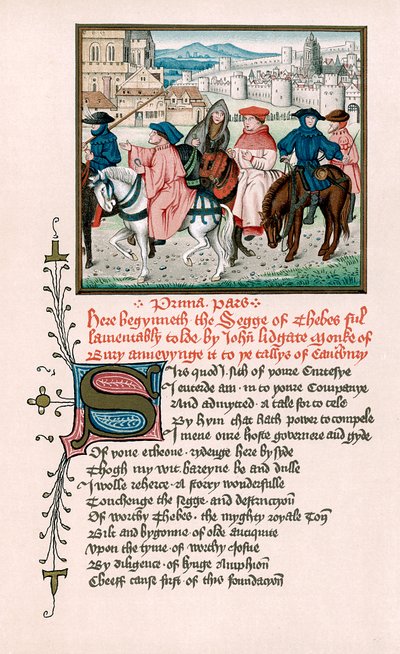 Prima pars
Here begynneth the Segge of Thebes ful
lamentably tolde by John lidgate Monke of
Bury annexynge it to ye tallys of Cantbury
Sirs quod I sith of youre Curtesye
I entrede am · in to youre Companye
And admytted · a tale for to tele
By hym that hath power to compele
I mene oure hoste governere and gyde
Of yone echeone · rydenge here by syde
Thogh my wit bareyne be and dulle
I wolle reherce · a story wonderfulle
Touchenge the segge · and destruccyon
Of worthy Thebes · the myghty royale Ton
Bilt and bygonne · of olde antiquite
Upon the tyme · of worthy Josue
By diligence · of kynge Amphion
Cheeff cause first · of this foundacyon